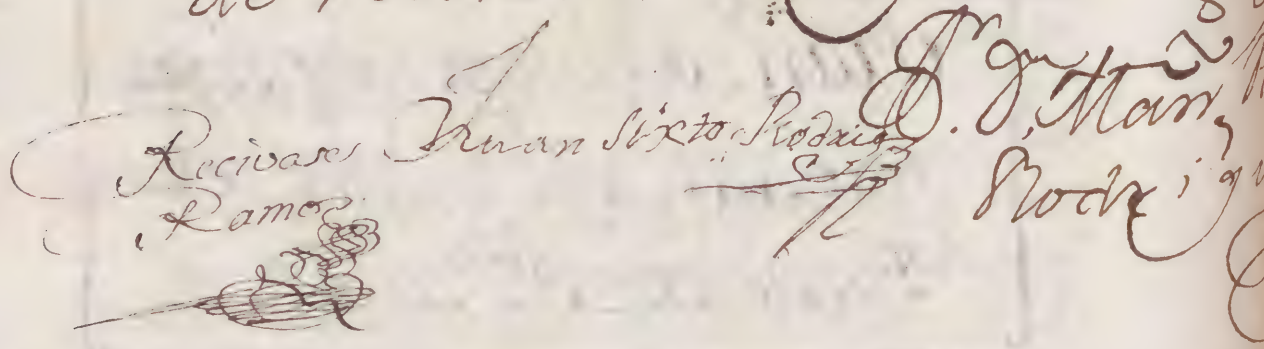 Recivase
Ramos
Juan Sixto Rodrig
Man
Rodrigu